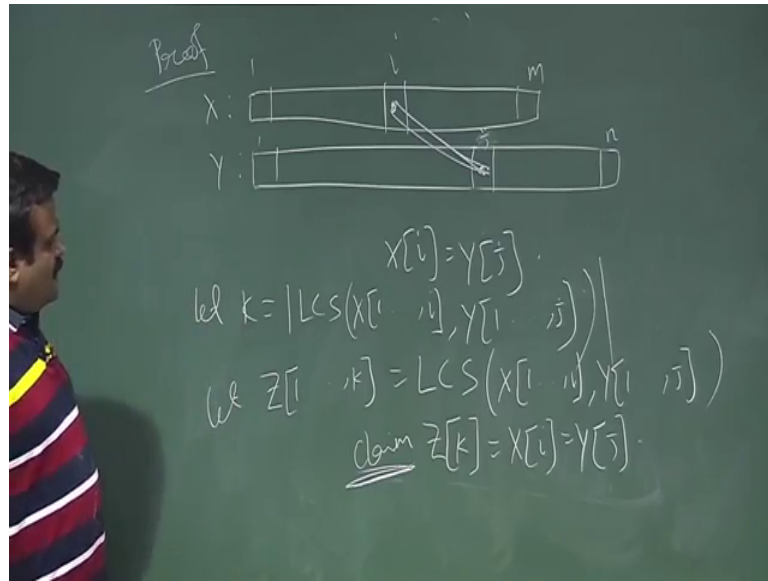 Proof
1 i m
X:
1 j n
Y:
X[i] = Y[j].
let k = |LCS(X[1 .. ,i], Y[1 .. ,j])|
let Z[1 .. ,k] = LCS(X[1 .. ,i], Y[1 ,j])
claim Z[k] = X[i] = Y[j].